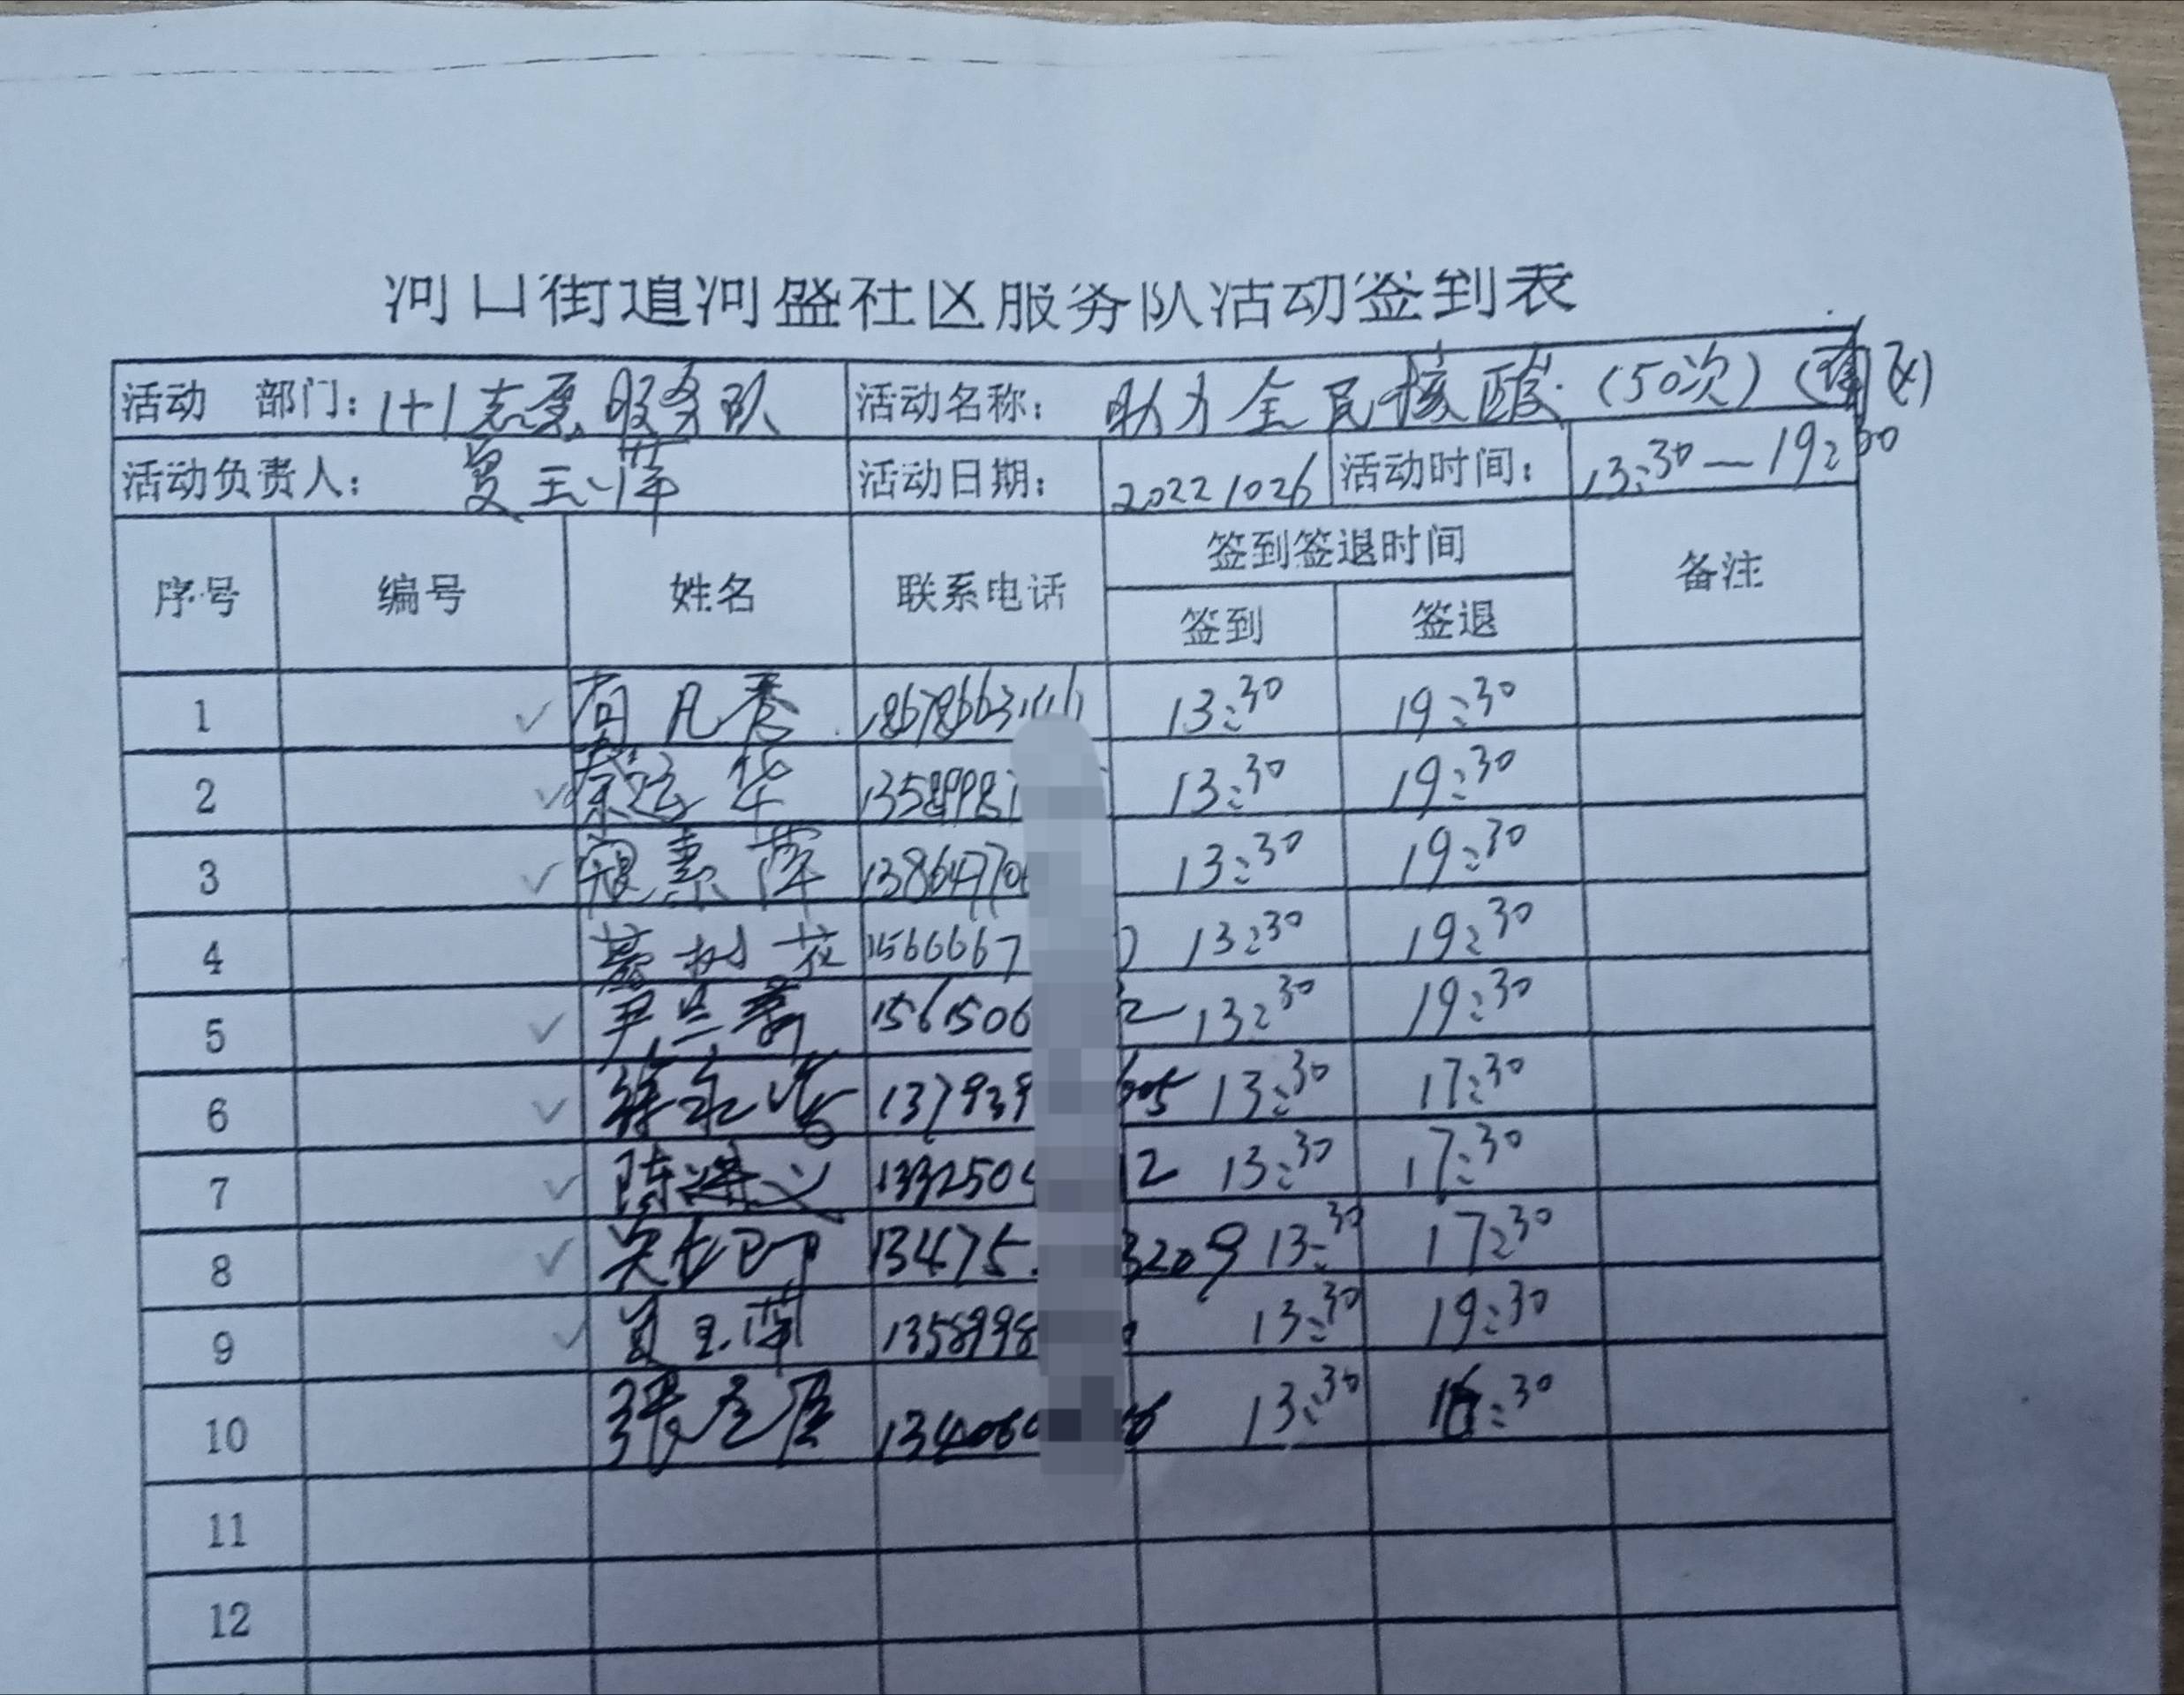 河口街道河盛社区服务队活动签到表
活动 部门: 1+1志愿服务队 活动名称: 助力全民核酸(50次)
活动负责人: 夏玉萍 活动日期: 20221026 活动时间: 13:30—19:30
序号 编号 姓名 联系电话 签到签退时间 备注
签到 签退
1 ✓ 13:30 19:30
2 ✓ 蔡运华 1358998 13:30 19:30
3 ✓ 寇素萍 13864770 13:30 19:30
4 綦树花 1566667 13:30 19:30
5 ✓ 尹兰香 1561506 2 13:30 19:30
6 ✓ 137939 05 13:30 17:30
7 ✓ 1332506 12 13:30 17:30
8 ✓ 13475 3209 13:30 17:30
9 ✓ 夏玉萍 1358998 13:30 19:30
10 134060 13:30 16:30
11
12